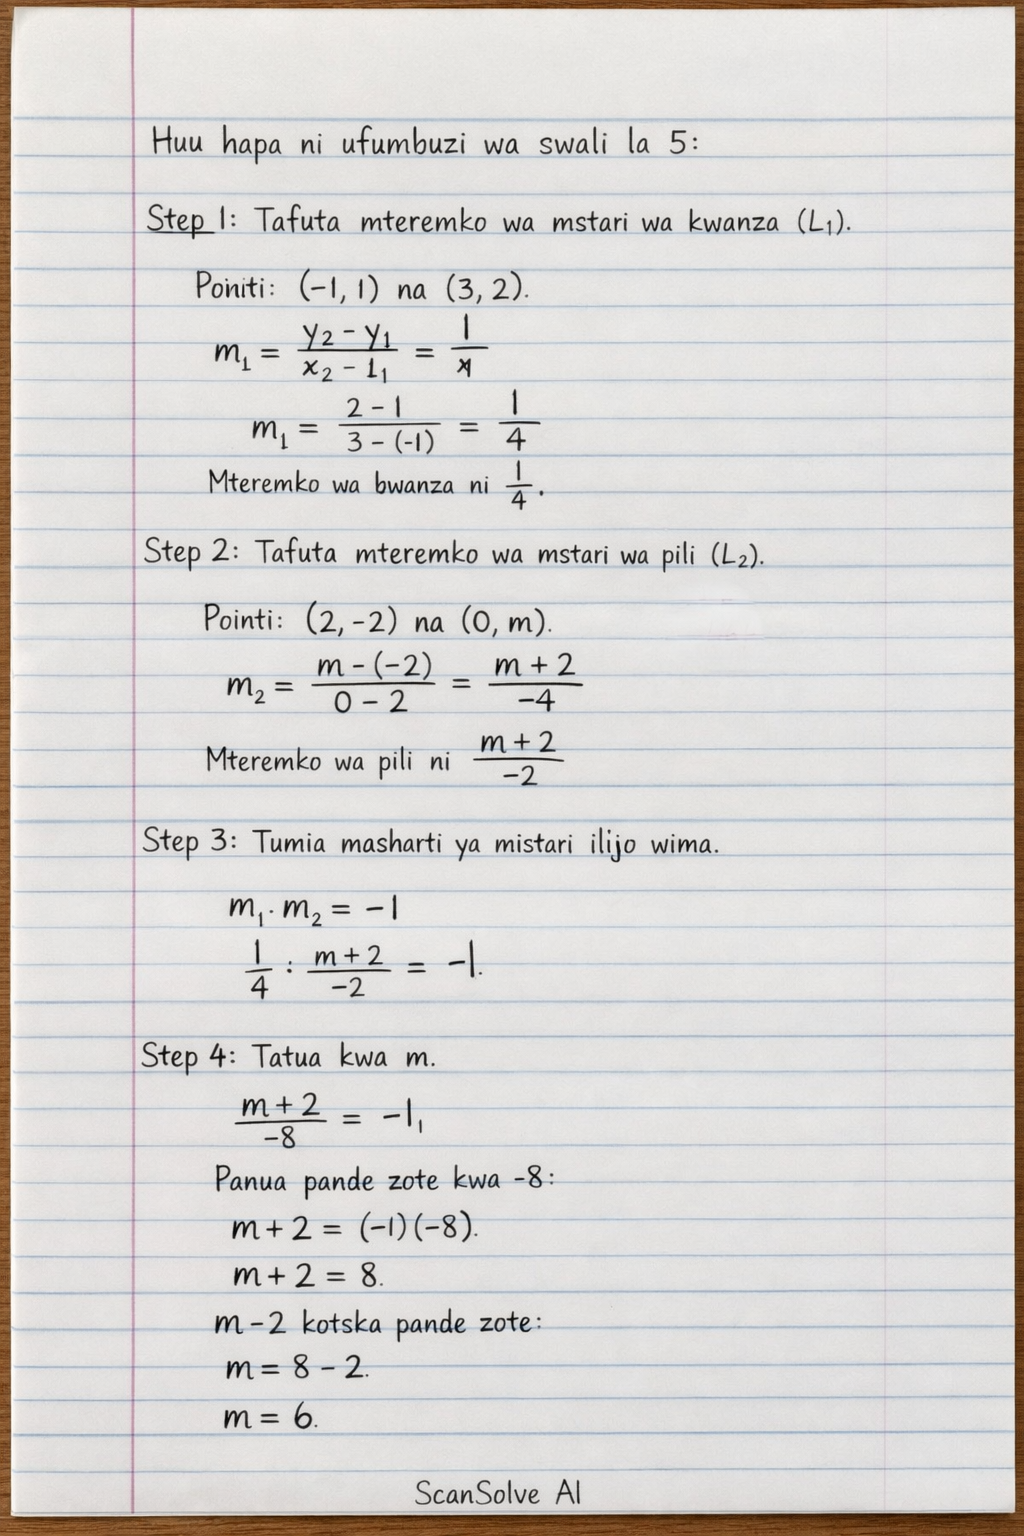 Huu hapa ni ufumbuzi wa swali la 5:
Step 1: Tafuta mteremko wa mstari wa kwanza (L₁).
Pointi: (-1, 1) na (3, 2).
m₁ = (y₂ - y₁)/(x₂ - 1₁) = 1/x
m₁ = (2 - 1)/(3 - (-1)) = 1/4
Mteremko wa bwanza ni 1/4.
Step 2: Tafuta mteremko wa mstari wa pili (L₂).
Pointi: (2, -2) na (0, m).
m₂ = (m - (-2))/(0 - 2) = (m + 2)/(-4)
Mteremko wa pili ni (m + 2)/(-2)
Step 3: Tumia masharti ya mistari ilijo wima.
m₁ · m₂ = -1
1/4 : (m + 2)/(-2) = -1.
Step 4: Tatua kwa m.
(m + 2)/(-8) = -1,
Panua pande zote kwa -8:
m + 2 = (-1)(-8).
m + 2 = 8.
m - 2 kotska pande zote:
m = 8 - 2.
m = 6.
ScanSolve AI